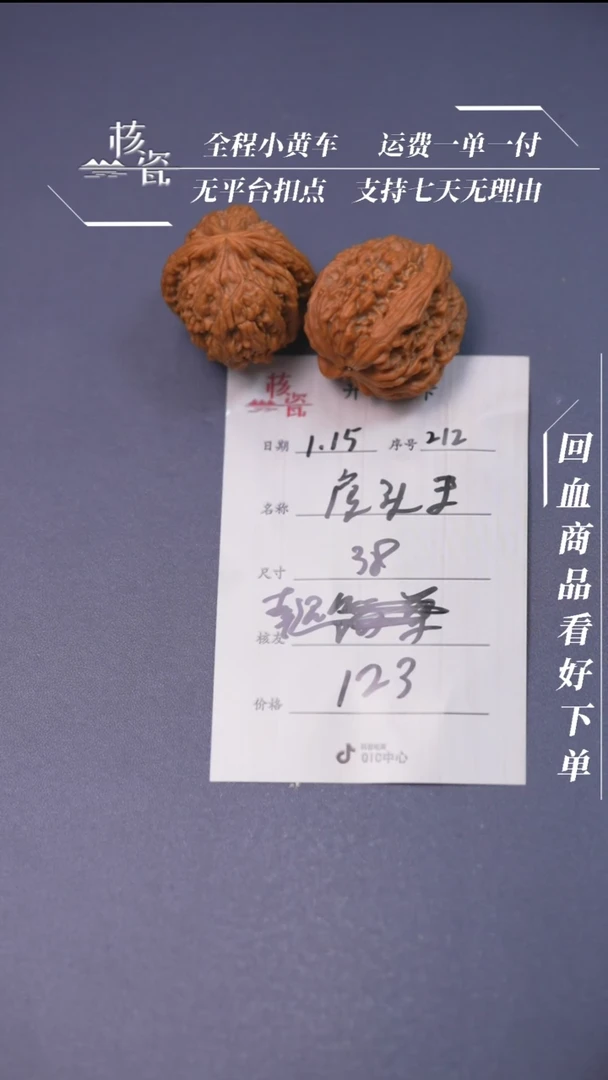 核瓷
全程小黄车 运费一单一付
无平台扣点 支持七天无理由
核瓷
日期 1.15 序号 212
名称 虎头王
尺寸 38
核友
价格 123
QIC中心
回血商品看好下单